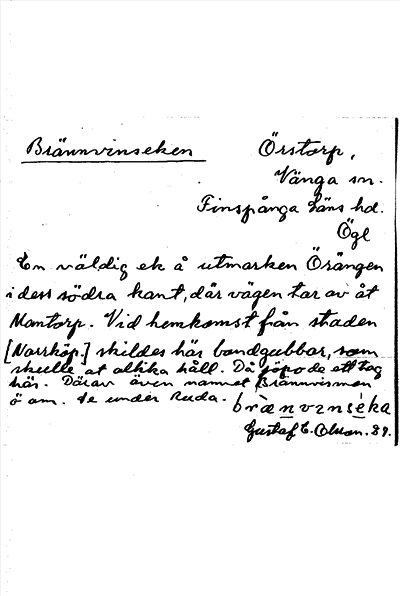 Brännvinseken
Örstorp,
Vånga sn.
Finspånga läns hd.
Ögl
En väldig ek å utmarken Örängen
i dess södra kant, där vägen tar av åt
Mamtorp. Vid hemkomst från staden
[Norrköp.] skildes här bondgubbar, som
skulle at olika håll. Då söpo de ett tag
här. Därav även namnet Brännvinsmon
ö om. Se under Ruda.
brænvinséka
Gustaf E. Olsson. 89.